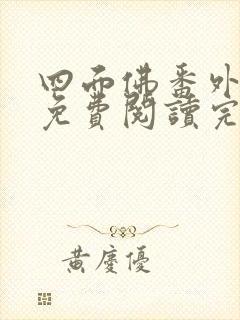 四面佛番外
免費閱讀完
黃慶優